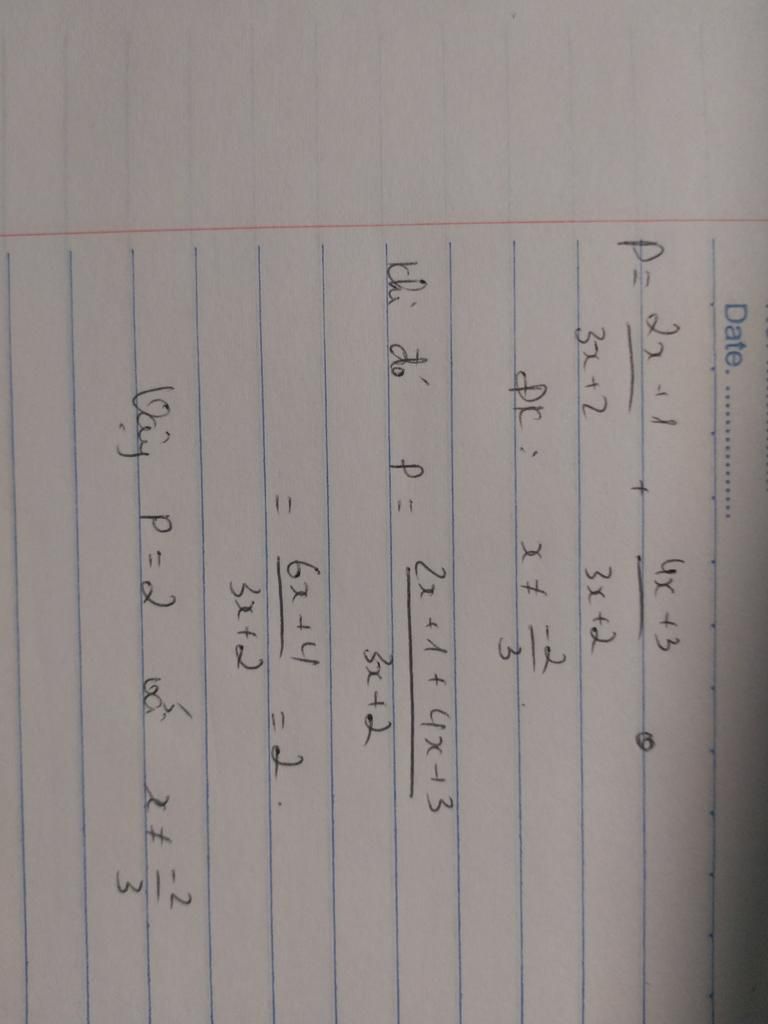 Date. ................
P = \frac{2x+1}{3x+2} + \frac{4x+3}{3x+2}
ĐK: x ≠ \frac{-2}{3}.
Khi đó P = \frac{2x+1+4x+3}{3x+2}
= \frac{6x+4}{3x+2} = 2.
Vậy P = 2 với x ≠ \frac{-2}{3}